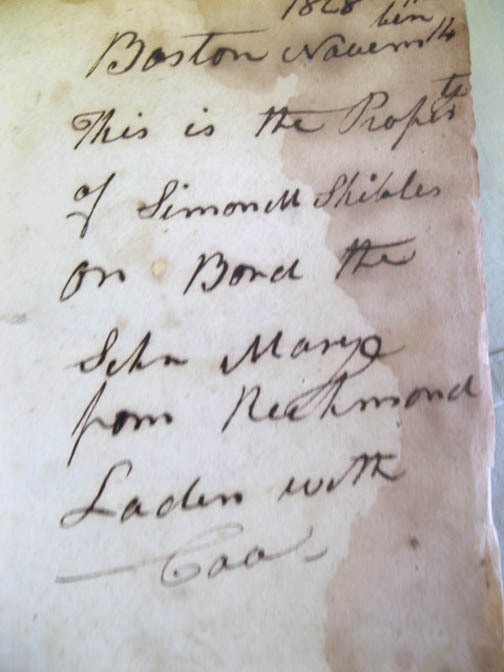 1828
Boston Novem ber 14
This is the Proper ty
of Simon M Shibles
on Bord the
Schr Mary
from Richmond
Laden with
Coa